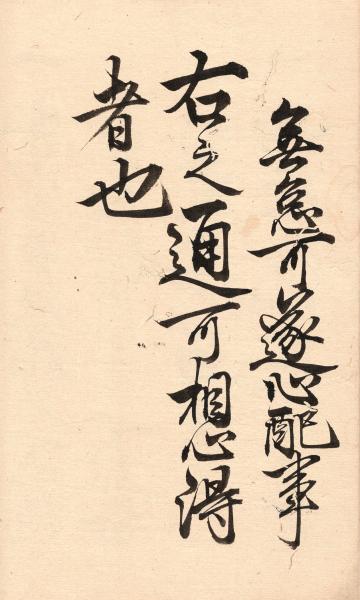 無怠可遂心配事
右之通可相心得
者也